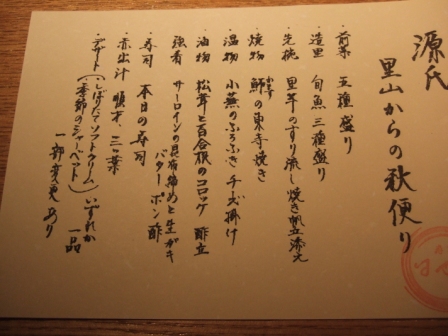 源氏
里山からの秋便り
・前菜 五種盛り
・造里 旬魚三種盛り
・先椀 里芋のすり流し焼き帆立添え
・焼物 鰤の東寺焼き
・温物 小蕪のふろふき チーズ掛け
・油物 松茸と百合根のコロッケ 酢立
・強肴 サーロインの昆布締めと生がき
バターポン酢
・寿司 本日の寿司
・赤出汁 順才、三ツ葉
・デザート(しぼりたてソフトクリーム)いずれか
(季節のシャーベット) 一品
一部変更あり